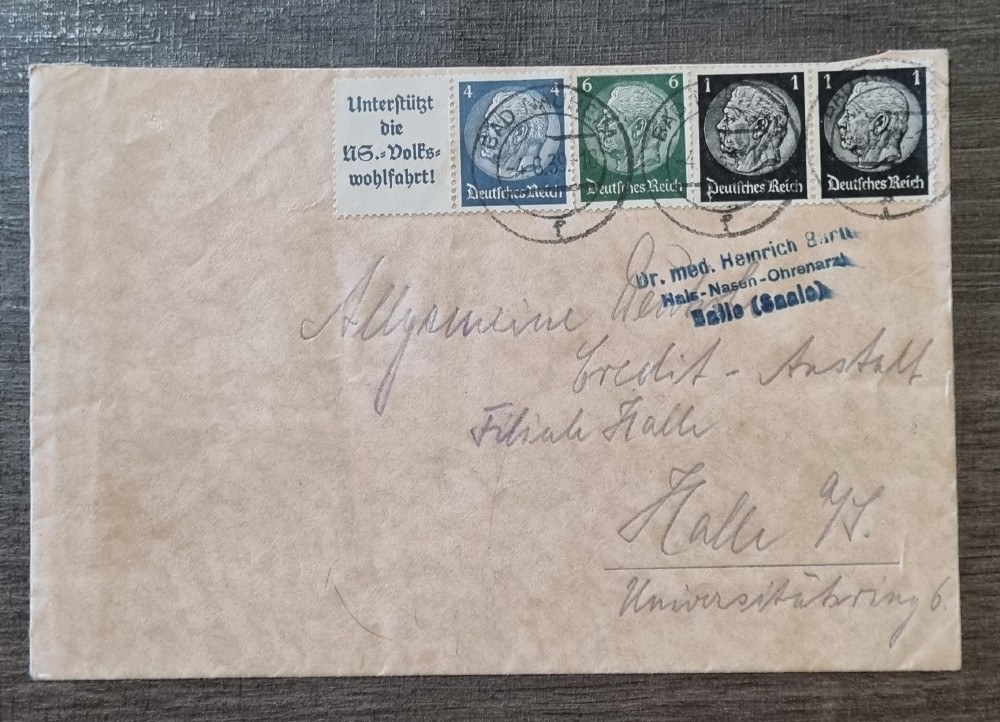 Unterstützt
die
NS.-Volks-
wohlfahrt!
4 4
Deutsches Reich
6 6
Deutsches Reich
1 1
Deutsches Reich
1 1
Deutsches Reich
BAD
Dr. med. Heinrich
Hals-Nasen-Ohrenarzt
Halle (Saale)
Allgemeine
Credit-Anstalt
Filiale Halle
Halle a/S.
Universitätsring 6.